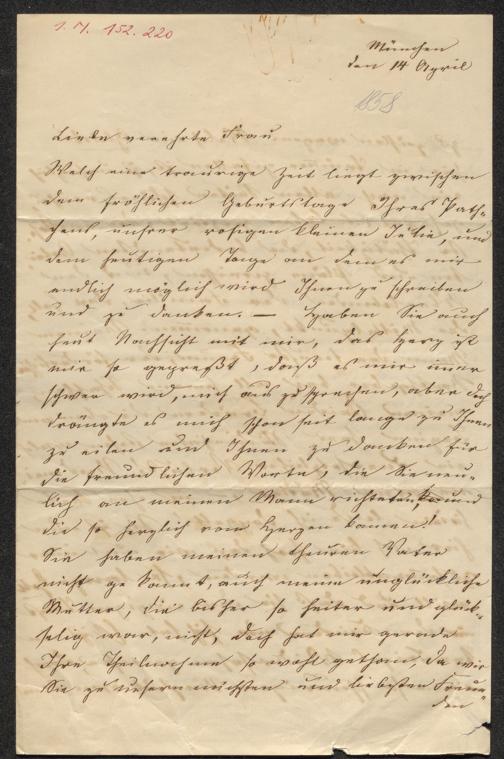 1. N. 152. 220
München
den 14 April
1858
Liebe verehrte Frau
Welch eine traurige Zeit liegt zwischen
dem fröhlichen Geburtstage Ihres Path-
chens, unsrer rosigen kleinen Julie, und
dem heutigen Tage an dem es mir
endlich möglich wird Ihnen zu schreiben
und zu danken. — Haben Sie auch
heut Nachsicht mit mir, das Herz ist
mir so gepreßt, daß es mir immer
schwer wird, mich aus zu sprechen, aber doch
drängte es mich schon seit lange zu Ihnen
zu eilen und Ihnen zu danken für
die freundlichen Worte, die Sie neu-
lich an meinen Mann richteten, und
die so herzlich vom Herzen kamen!
Sie haben meinen theuren Vater
nicht gekannt, auch meine unglückliche
Mutter, die bisher so heiter und glück-
selig war, nicht, doch hat mir gerade
Ihre Theilnahme so wohl gethan, da wir
Sie zu unsern nächsten und liebsten Freun-
den